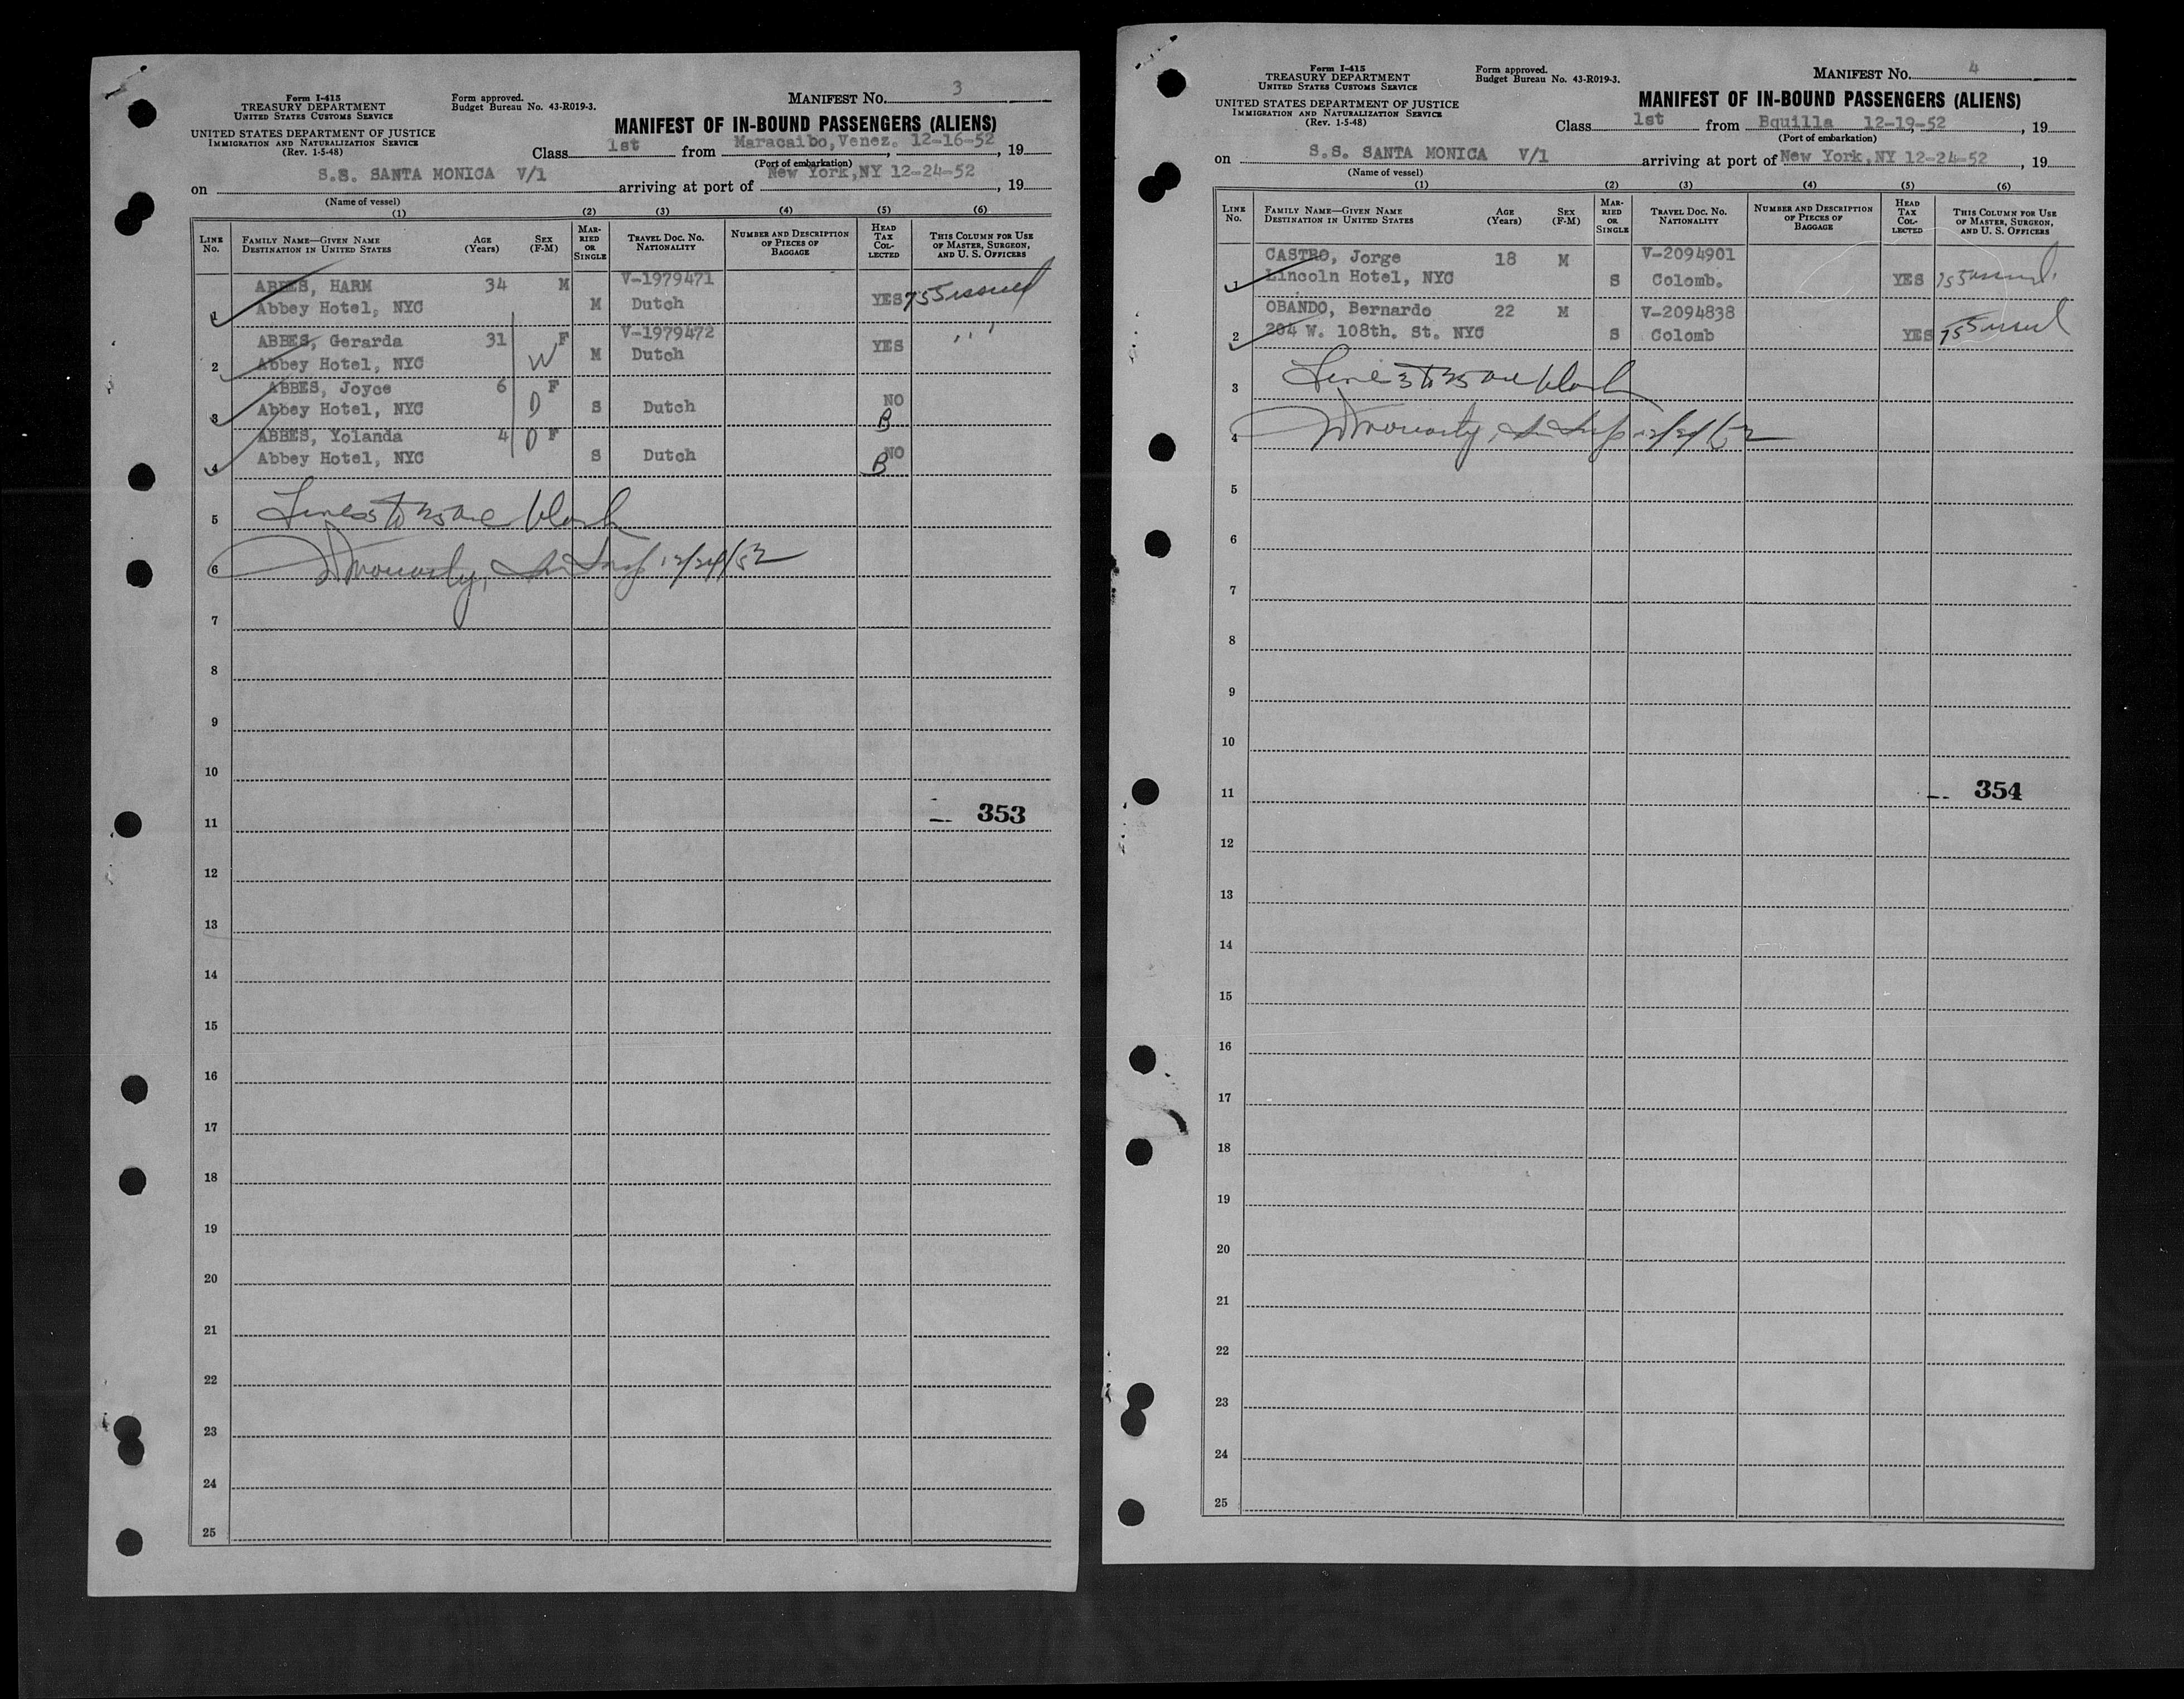 Form I-415
TREASURY DEPARTMENT
UNITED STATES CUSTOMS SERVICE
UNITED STATES DEPARTMENT OF JUSTICE
IMMIGRATION AND NATURALIZATION SERVICE
(Rev. 1-5-48)
Form approved.
Budget Bureau No. 43-R019-3.
MANIFEST No. 3
MANIFEST OF IN-BOUND PASSENGERS (ALIENS)
Class 1st from Maracaibo, Venez. 12-16-52, 19
(Port of embarkation)
on S.S. SANTA MONICA V/1 arriving at port of New York, NY 12-24-52, 19
(Name of vessel)
(1) (2) (3) (4) (5) (6)
LINE No. FAMILY NAME—GIVEN NAME DESTINATION IN UNITED STATES AGE (Years) SEX (F-M) MARRIED OR SINGLE TRAVEL DOC. No. NATIONALITY NUMBER AND DESCRIPTION OF PIECES OF BAGGAGE HEAD TAX COLLECTED THIS COLUMN FOR USE OF MASTER, SURGEON, AND U. S. OFFICERS
ABBES, HARM 34 M V-1979471
1 Abbey Hotel, NYC M Dutch YES 755 issued
ABBES, Gerarda 31 F V-1979472
2 Abbey Hotel, NYC W M Dutch YES " "
ABBES, Joyce 6 F
3 Abbey Hotel, NYC D S Dutch NO B
ABBES, Yolanda 4 D F
4 Abbey Hotel, NYC S Dutch NO B
5 Lines 5 to 25 are blank
6 Imm Insp 12/24/52
7
8
9
10
353
11
12
13
14
15
16
17
18
19
20
21
22
23
24
25
Form I-415
TREASURY DEPARTMENT
UNITED STATES CUSTOMS SERVICE
UNITED STATES DEPARTMENT OF JUSTICE
IMMIGRATION AND NATURALIZATION SERVICE
(Rev. 1-5-48)
Form approved.
Budget Bureau No. 43-R019-3.
MANIFEST No. 4
MANIFEST OF IN-BOUND PASSENGERS (ALIENS)
Class 1st from Bquilla 12-19-52, 19
(Port of embarkation)
on S.S. SANTA MONICA V/1 arriving at port of New York, NY 12-24-52, 19
(Name of vessel)
(1) (2) (3) (4) (5) (6)
LINE No. FAMILY NAME—GIVEN NAME DESTINATION IN UNITED STATES AGE (Years) SEX (F-M) MARRIED OR SINGLE TRAVEL DOC. No. NATIONALITY NUMBER AND DESCRIPTION OF PIECES OF BAGGAGE HEAD TAX COLLECTED THIS COLUMN FOR USE OF MASTER, SURGEON, AND U. S. OFFICERS
CASTRO, Jorge 18 M V-2094901
1 Lincoln Hotel, NYC S Colomb. YES 755 issued
OBANDO, Bernardo 22 M V-2094838
2 204 W. 108th. St. NYC S Colomb YES 755 issued
3 Lines 3 to 25 are blank
4 Imm Insp 12/24/52
5
6
7
8
9
10
354
11
12
13
14
15
16
17
18
19
20
21
22
23
24
25